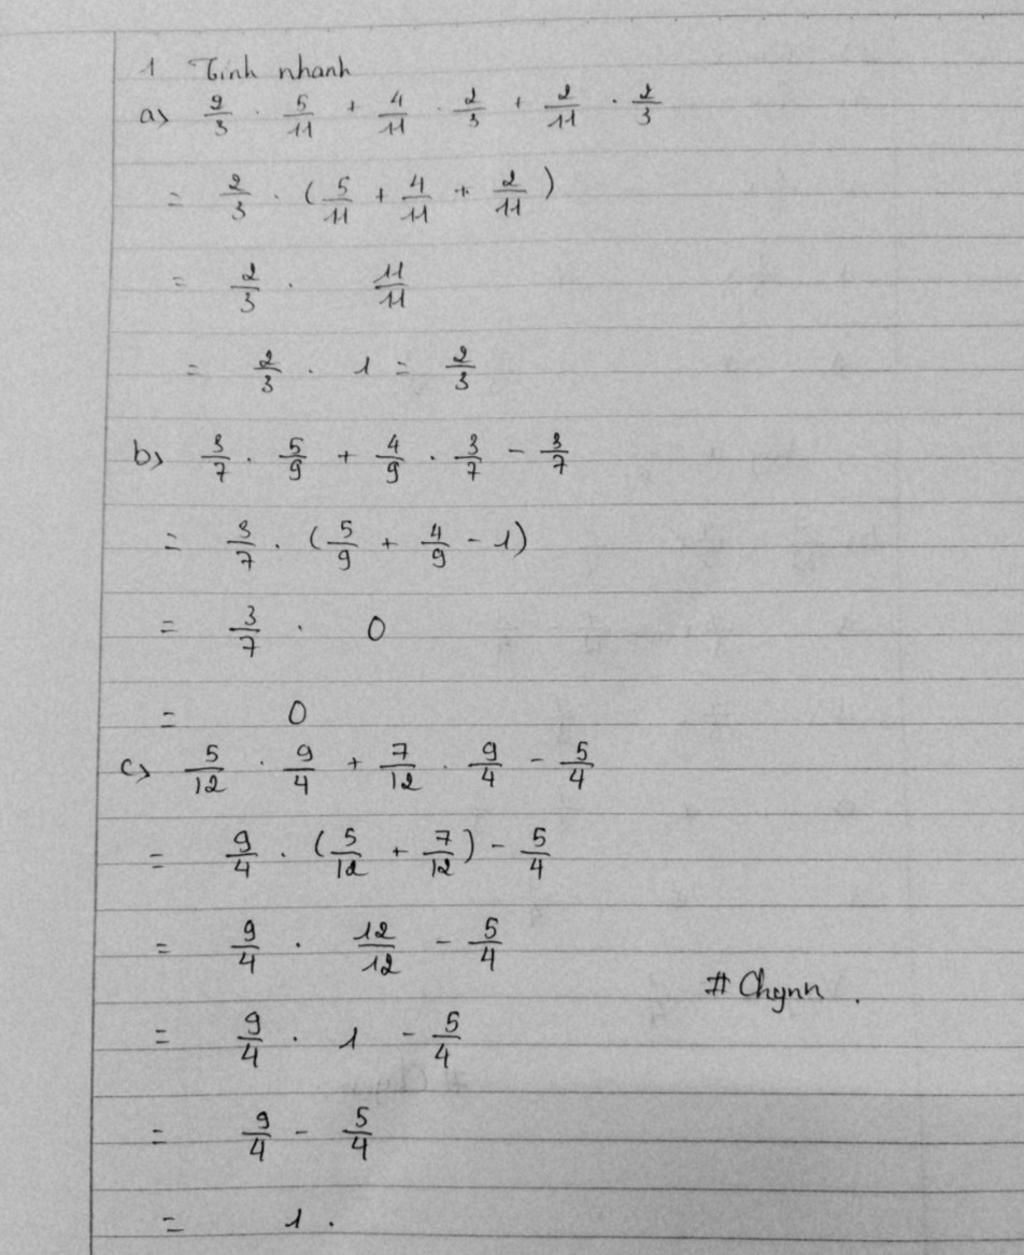 1 Tính nhanh
a) 2/3 . 5/11 + 4/11 . 2/3 + 2/11 . 2/3
= 2/3 . (5/11 + 4/11 + 2/11)
= 2/3 . 11/11
= 2/3 . 1 = 2/3
b) 3/7 . 5/9 + 4/9 . 3/7 - 3/7
= 3/7 . (5/9 + 4/9 - 1)
= 3/7 . 0
= 0
c) 5/12 . 9/4 + 7/12 . 9/4 - 5/4
= 9/4 . (5/12 + 7/12) - 5/4
= 9/4 . 12/12 - 5/4
# Chynn .
= 9/4 . 1 - 5/4
= 9/4 - 5/4
= 1 .